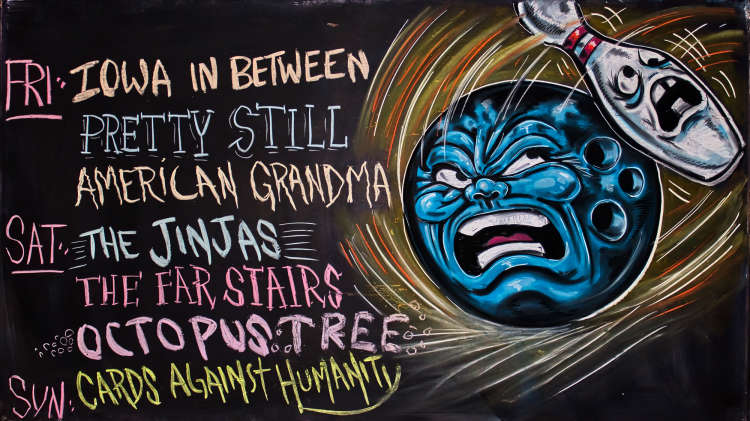 FRI: IOWA IN BETWEEN
PRETTY STILL
AMERICAN GRANDMA
SAT: THE JINJAS
THE FAR STAIRS
OCTOPUS TREE
SUN: CARDS AGAINST HUMANITY